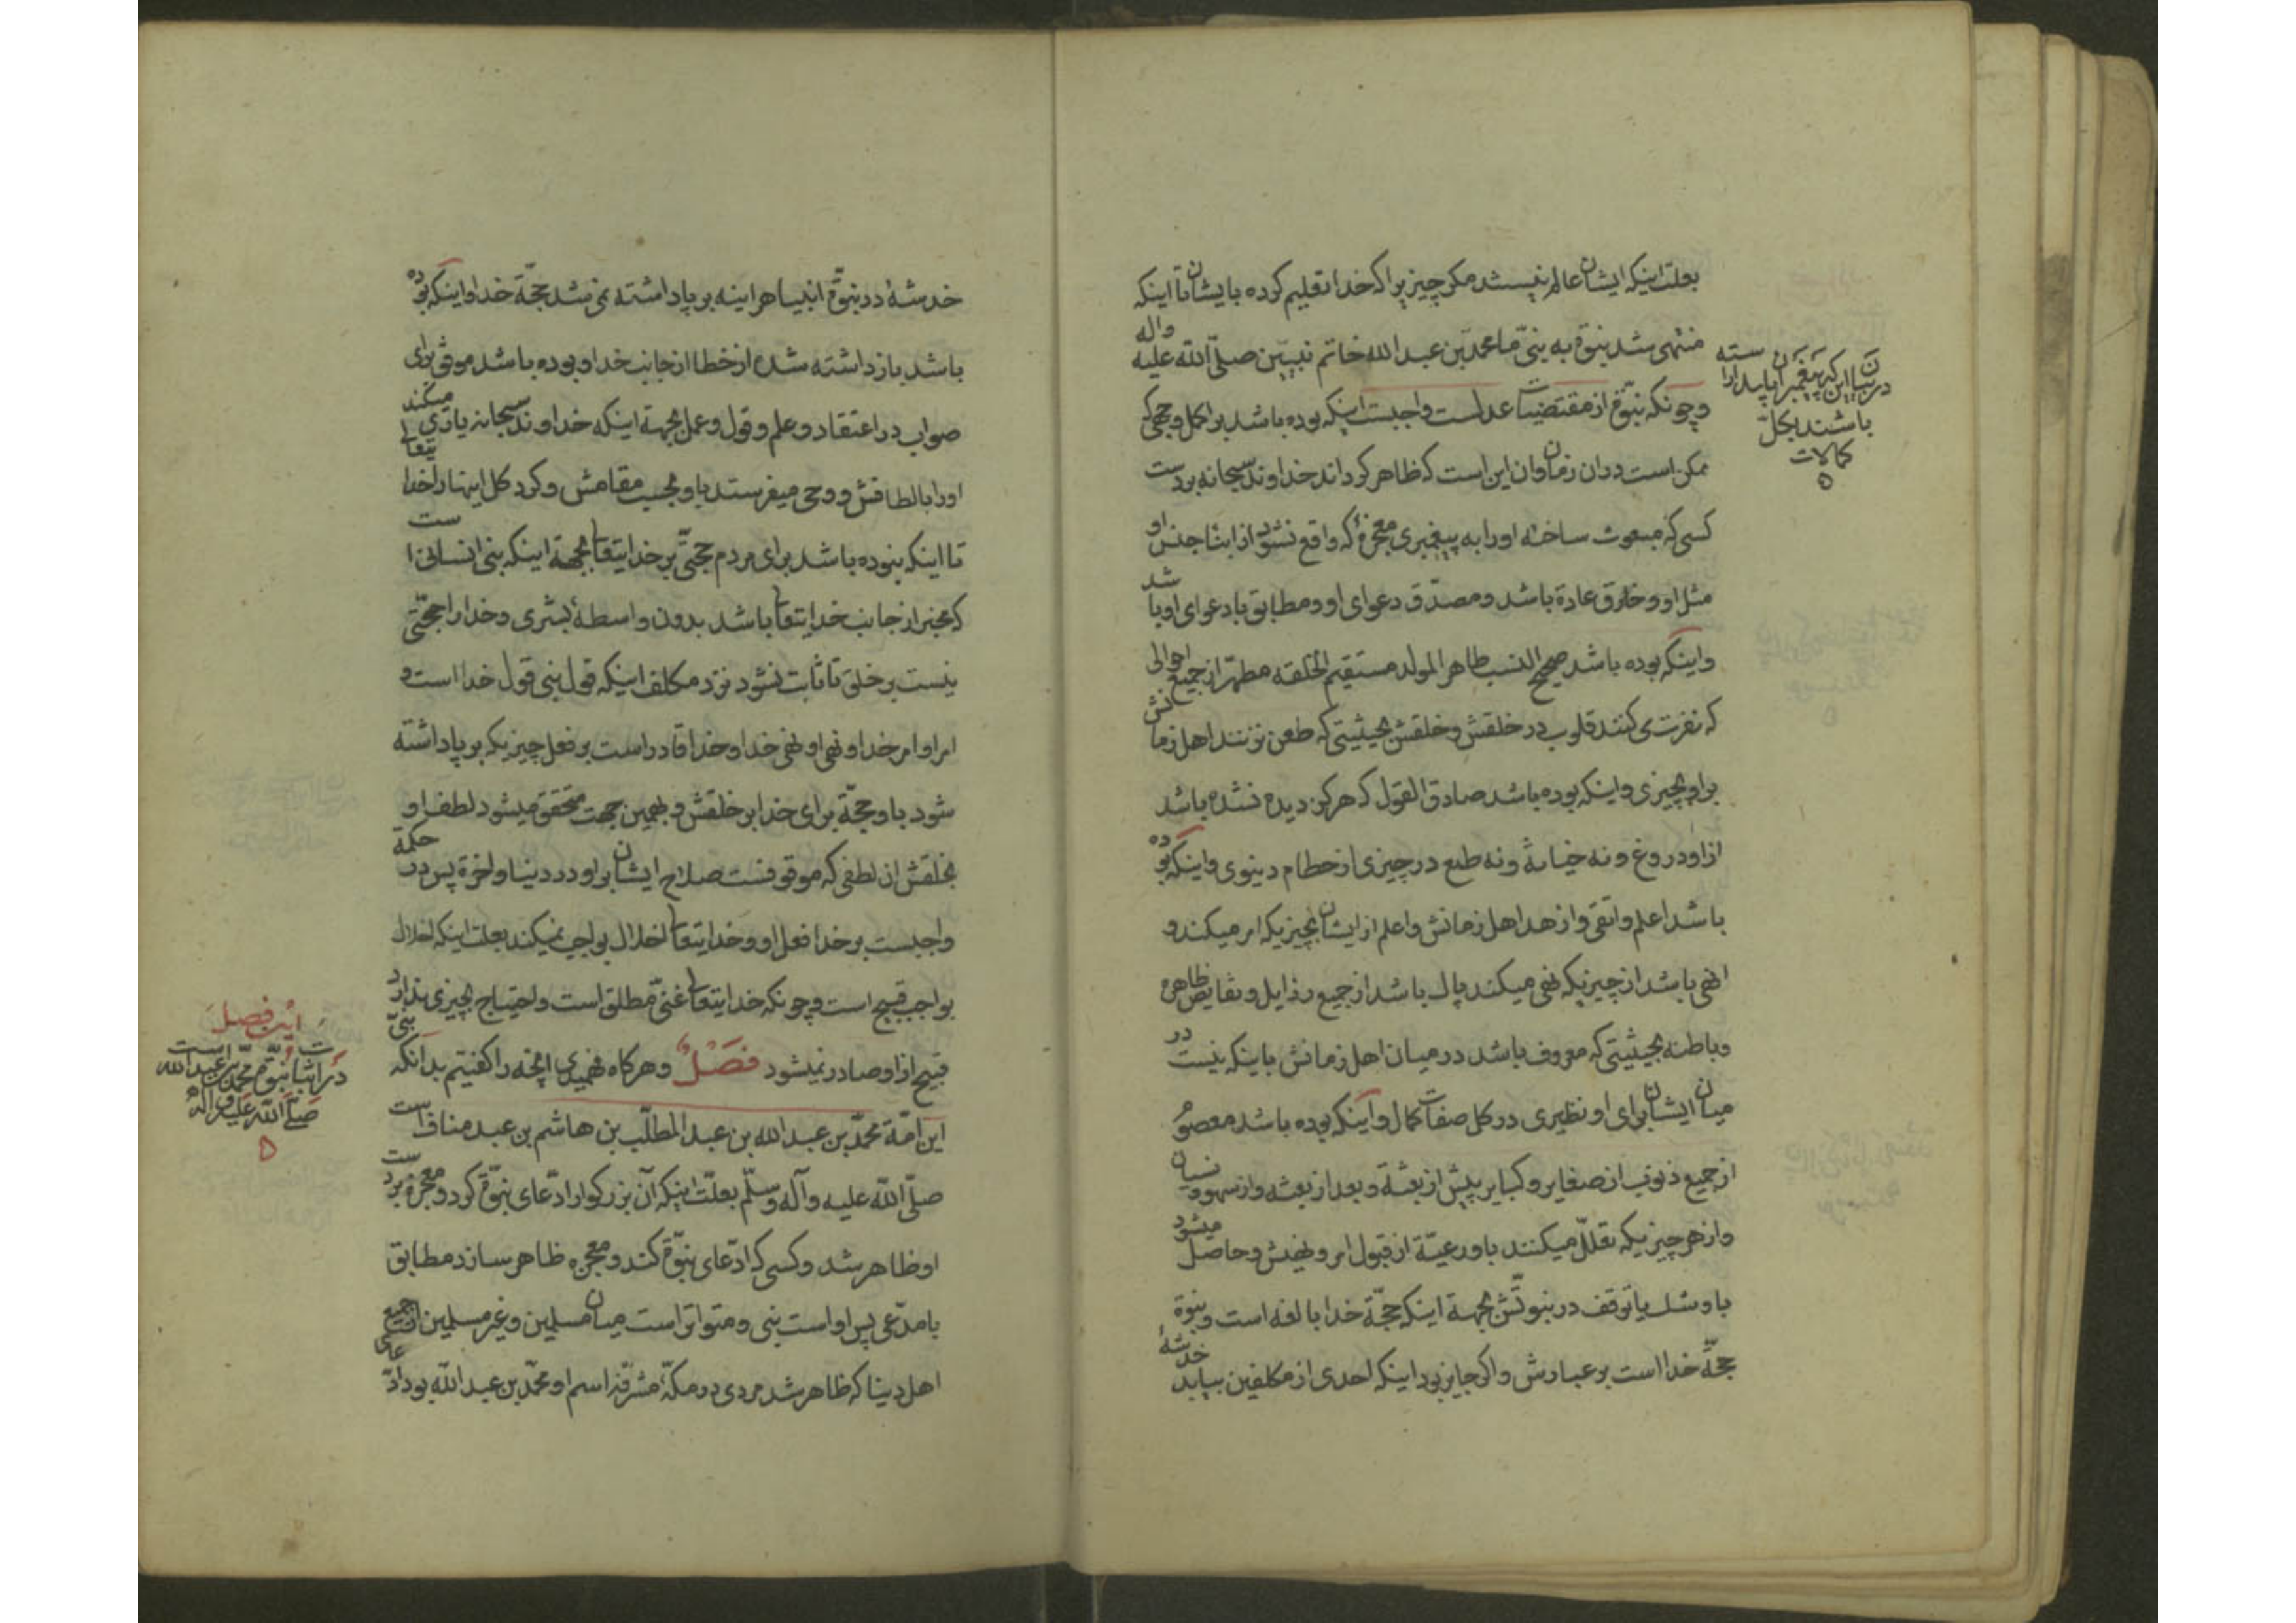 بعلت اینکه ایشان عالم نیستند مگر چیزیرا که خدا تعلیم کرده بایشان تا اینکه
منتهی شد نبوّة به نبیّ ما محمد بن عبد الله خاتم نبیّین صلّی الله علیه واله
وچونکه نبوّة از مقتضیات عدلست واجبست اینکه بوده باشد بر اکمل وجهی که
ممکن است در ان زمان وان این است که ظاهر کرداند خداوند سبحانه بردست
کسی که مبعوث ساخته اورا به پیغمبری معجزهٔ که واقع نشود از ابناء جنس او
مثل او وخارق عادة باشد ومصدّق دعوای او ومطابق با دعوای او باشد
واینکه بوده باشد صحیح النسب طاهر المولد مستقیم الخلقه مطهّر از جمیع احوالی
که نفرت می کنند قلوب در خلقش وخلقش بحیثیتی که طعن نزنند اهل زمانش
براو بچیزی واینکه بوده باشد صادق القول که هرکز دیده نشده باشد
ازاو دروغ ونه خیانة ونه طمع در چیزی از حطام دنیوی واینکه بوده
باشد اعلم واتقی وازهد اهل زمانش واعلم از ایشان بچیزیکه امر میکند و
انهی باشد از چیزیکه نهی میکند پاک باشد از جمیع رذایل ونقایص ظاهره
وباطنه بحیثیتی که معروف باشد در میان اهل زمانش باینکه نیست در
میان ایشان برای او نظیری در کل صفات کمال واینکه بوده باشد معصوم
از جمیع ذنوب از صغایر وکبایر پیش از بعثة وبعد از بعثه واز سهو ونسیان
واز هرچیزیکه تعلّل میکنند باو رعیّة از قبول امر ونهیش وحاصل میشود
باو شک یا توقف در نبوتّش بجهة اینکه حجّة خدا بالغه است ونبوة
حجّة خدا است بر عبادش واکر جایز بود اینکه احدی از مکلفین بیابد خدشهٔ
در بیان این که پیغمبران باید اراسته
باشند بکلّ
کمالات
خدشهٔ در نبوّة انبیا هراینه بر پا داشته نمی شد حجّة خدا واینکه بوده
باشد باز داشته شده از خطا از جانب خدا وبوده باشد موفق برای
صواب در اعتقاد وعلم وقول وعمل بجهة اینکه خداوند سبحانه یاری میکند
اورا بالطافش ووحی میفرستد باو بحسب مقامش وکرد کل اینها را خدا یتعالی
تا اینکه نبوده باشد برای مردم حجّتی بر خدا یتعالی بجهة اینکه نبی انسانی است
که مخبر از جانب خدا یتعالی باشد بدون واسطهٔ بشری وخدا را حجّتی
نیست بر خلق تا ثابت نشود نزد مکلف اینکه قول نبی قول خدا است و
امر او امر خدا ونهی او نهی خدا وخدا قادر است بر فعل چیزیکه بر پا داشته
شود باو حجّة برای خدا بر خلقش وبهمین جهت متحقق میشود لطف او
بخلقش ان لطفی که موقوفست صلاح ایشان براو در دنیا واخرة پس در حکمة
واجبست بر خدا فعل او وخدا یتعالی اخلال بواجب نمیکند بعلت اینکه اخلال
بواجب قبیح است وچونکه خدا یتعالی غنیّ مطلق است واحتیاج بچیزی ندارد
قبیح از او صادر نمیشود فصْلٌ وهرکاه فهمیدی انچه را کفتیم بدانکه نبیّ
این امّة محمّد بن عبد الله بن عبد المطلّب بن هاشم بن عبد مناف است
صلّی الله علیه وآله وسلّم بعلّت اینکه آن بزرکوار ادّعای نبوّة کرد ومعجزه بردست
او ظاهر شد وکسی که ادّعای نبوّة کند ومعجزه ظاهر سازد مطابق
با مدّعی پس او است نبی ومتواتر است میان مسلمین وغیر مسلمین از جمیع
اهل دنیا که ظاهر شد مردی در مکّه مشرّفه اسم او محمّد بن عبد الله بود ادّعای
این فصل
در اثبات نبوّة محمّد بن عبد الله است
صلّی الله علیه واله